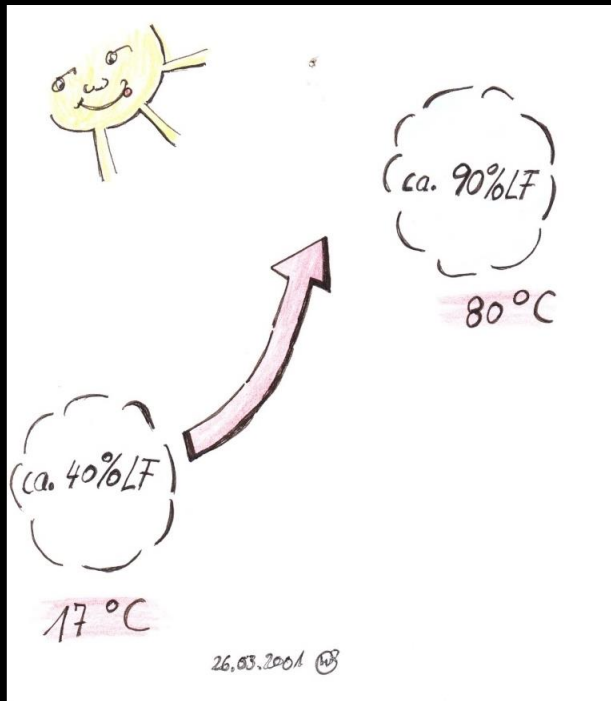 ca. 90%LF
80°C
ca. 40%LF
17°C
26.03.2001